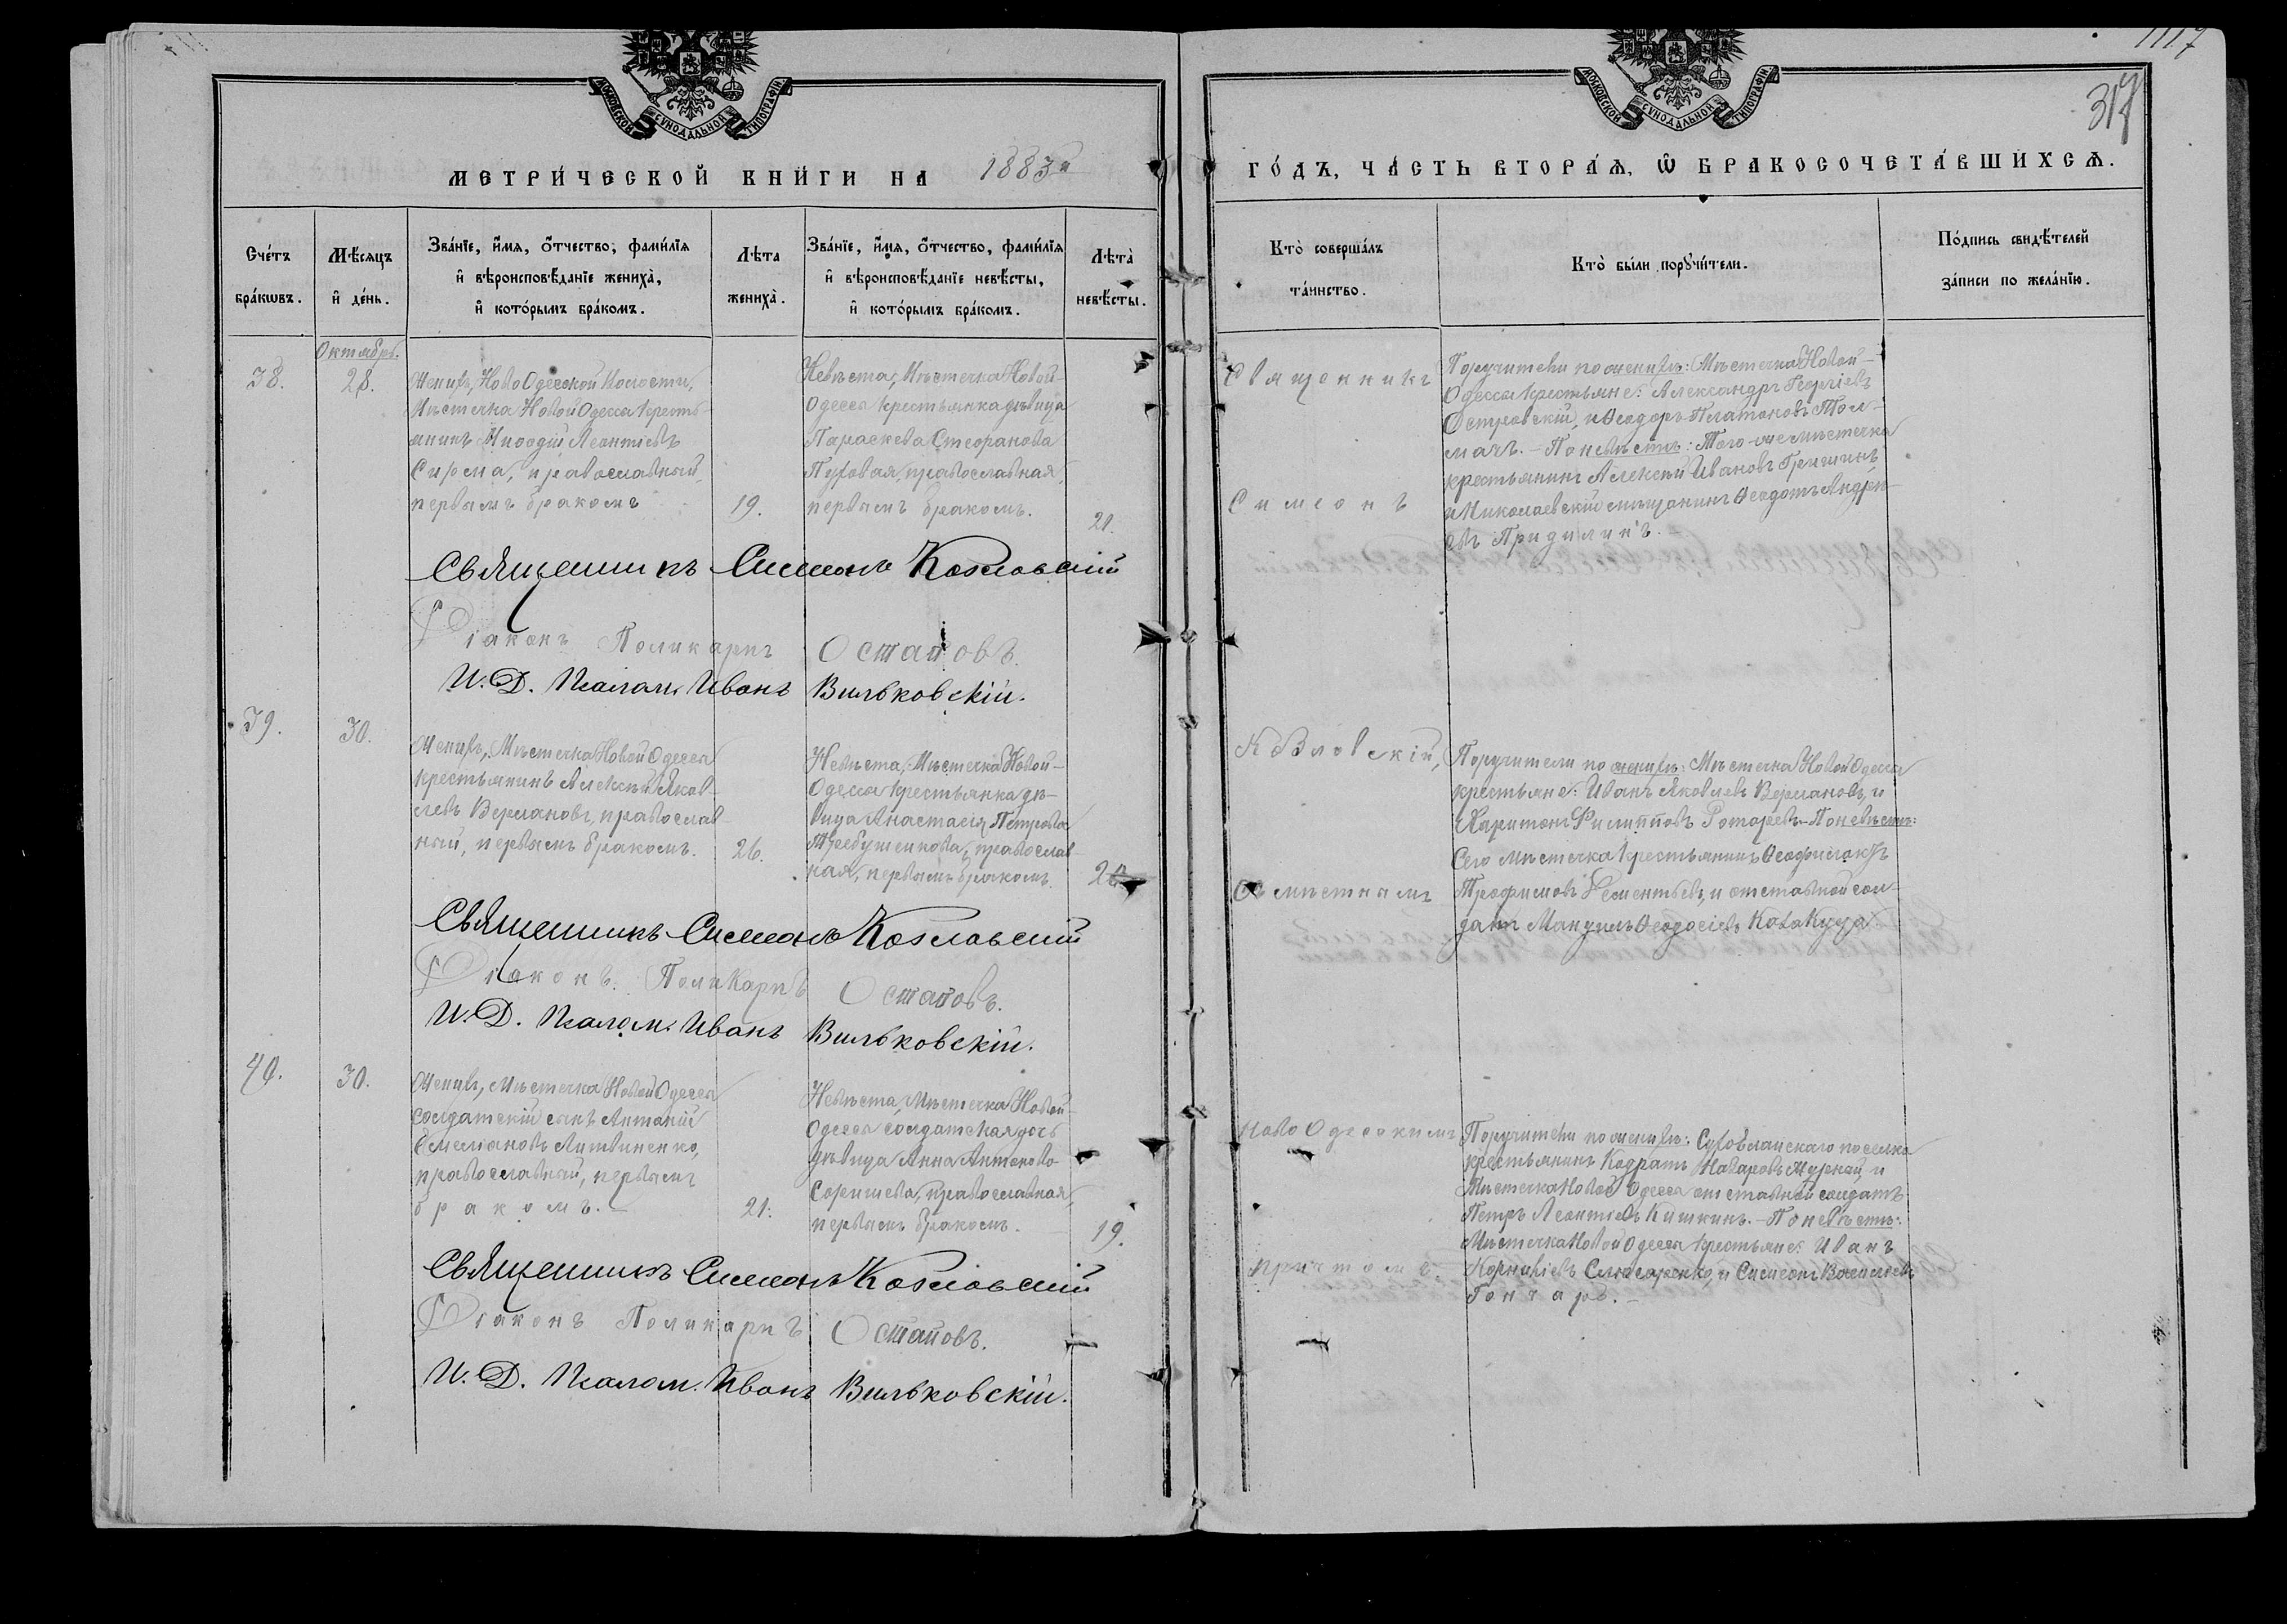 1117
317
МОСКОВСКОЙ СѴНОДАЛЬНОЙ ТИПОГРАФІИ.
МОСКОВСКОЙ СѴНОДАЛЬНОЙ ТИПОГРАФІИ.
МЕТРИ́ЧЕСКОЙ КНИ́ГИ НА 1883й
ГО́ДЪ, ЧА́СТЬ ВТОРА́Ѧ, Ѿ БРАКОСОЧЕТА́ВШИХСѦ.
Сче́тъ бра́кѡвъ.
Мѣ́сяцъ и҆ де́нь.
Зва́нїе, и҆́мѧ, ѻ҆́тчество, фами́лїѧ и҆ вѣроисповѣ́данїе жениха̀, и҆ кото́рымъ бра́комъ.
Лѣта жениха̀.
Зва́нїе, и҆́мѧ, ѻ҆́тчество, фами́лїѧ и҆ вѣроисповѣ́данїе невѣ́сты, и҆ кото́рымъ бра́комъ.
Лѣта̀ невѣ́сты.
Кто̀ соверша́лъ та́инство.
Кто̀ бы́ли порꙋчи́тели.
По́дпись свидѣ́телей за́писи по жела́нїю.
Октябрь.
38.
28.
Женихъ, Ново Одесской Волости,
Мѣстечка Новой Одесса кресть-
янинъ Леонтіевъ
православный,
первымъ бракомъ
19.
Невѣста, Мѣстечка Новой-
Одесса крестьянка дѣвица
Параскева Стефанова
православная,
первымъ бракомъ.
21.
Священникъ
Симеонъ
Поручители по женихѣ: Мѣстечка Новой-
Одесса крестьяне: Александръ Георгіевъ
Островскій, и Ѳеодоръ Платоновъ Тол-
мачъ. - По невѣстѣ: Того-же мѣстечка
крестьянинъ Алексѣй Ивановъ Гришинъ,
и Николаевскій мѣщанинъ Ѳеодотъ Андре-
евъ
Священникъ Симеонъ Козловскій
Діаконъ Поликарпъ Остаповъ.
И. Д. Псалом. Иванъ Вильковскій.
39.
30.
Женихъ, Мѣстечка Новой Одесса
крестьянинъ Алексѣй Яков-
левъ Вермановъ, православ-
ный, первымъ бракомъ.
26.
Невѣста, Мѣстечка Новой-
Одесса крестьянка дѣ-
вица Анастасія Петрова
Требушенкова, православ-
ная, первымъ бракомъ.
Козловскій,
Съ мѣстнымъ
Поручители по женихѣ: Мѣстечка Новой Одесса
крестьяне: Иванъ Яковлевъ Вермановъ, и
Харитонъ Филипповъ Ротаревъ. - По невѣстѣ:
Сего мѣстечка крестьянинъ Ѳеофилактъ
Трофимовъ и отставной сол-
датъ Мануилъ Ѳеодосіевъ
Священникъ Симеонъ Козловскій
Діаконъ. Поликарпъ Остаповъ.
И. Д. Псалом. Иванъ Вильковскій.
40.
30.
Женихъ, Мѣстечка Новой Одесса
солдатскій сынъ Антоній
Емеліановъ Литвиненко,
православный, первымъ
бракомъ. -
21.
Невѣста, Мѣстечка Новой-
Одесса солдатская дочь
дѣвица Анна Антонова
православная,
первымъ бракомъ.
19.
Ново Одесскимъ
причтомъ.
Поручители по женихѣ: поселка
крестьянинъ Кодратъ и
Мѣстечка Новой Одесса отставной солдатъ
Петръ Леонтіевъ Кишкинъ. - По невѣстѣ:
Мѣстечка Новой Одесса крестьяне: Иванъ
Корниліевъ Слюсаренко, и Симеонъ Васильевъ
Гончаръ. -
Священникъ Симеонъ Козловскій
Діаконъ Поликарпъ Остаповъ.
И. Д. Псалом. Иванъ Вильковскій.